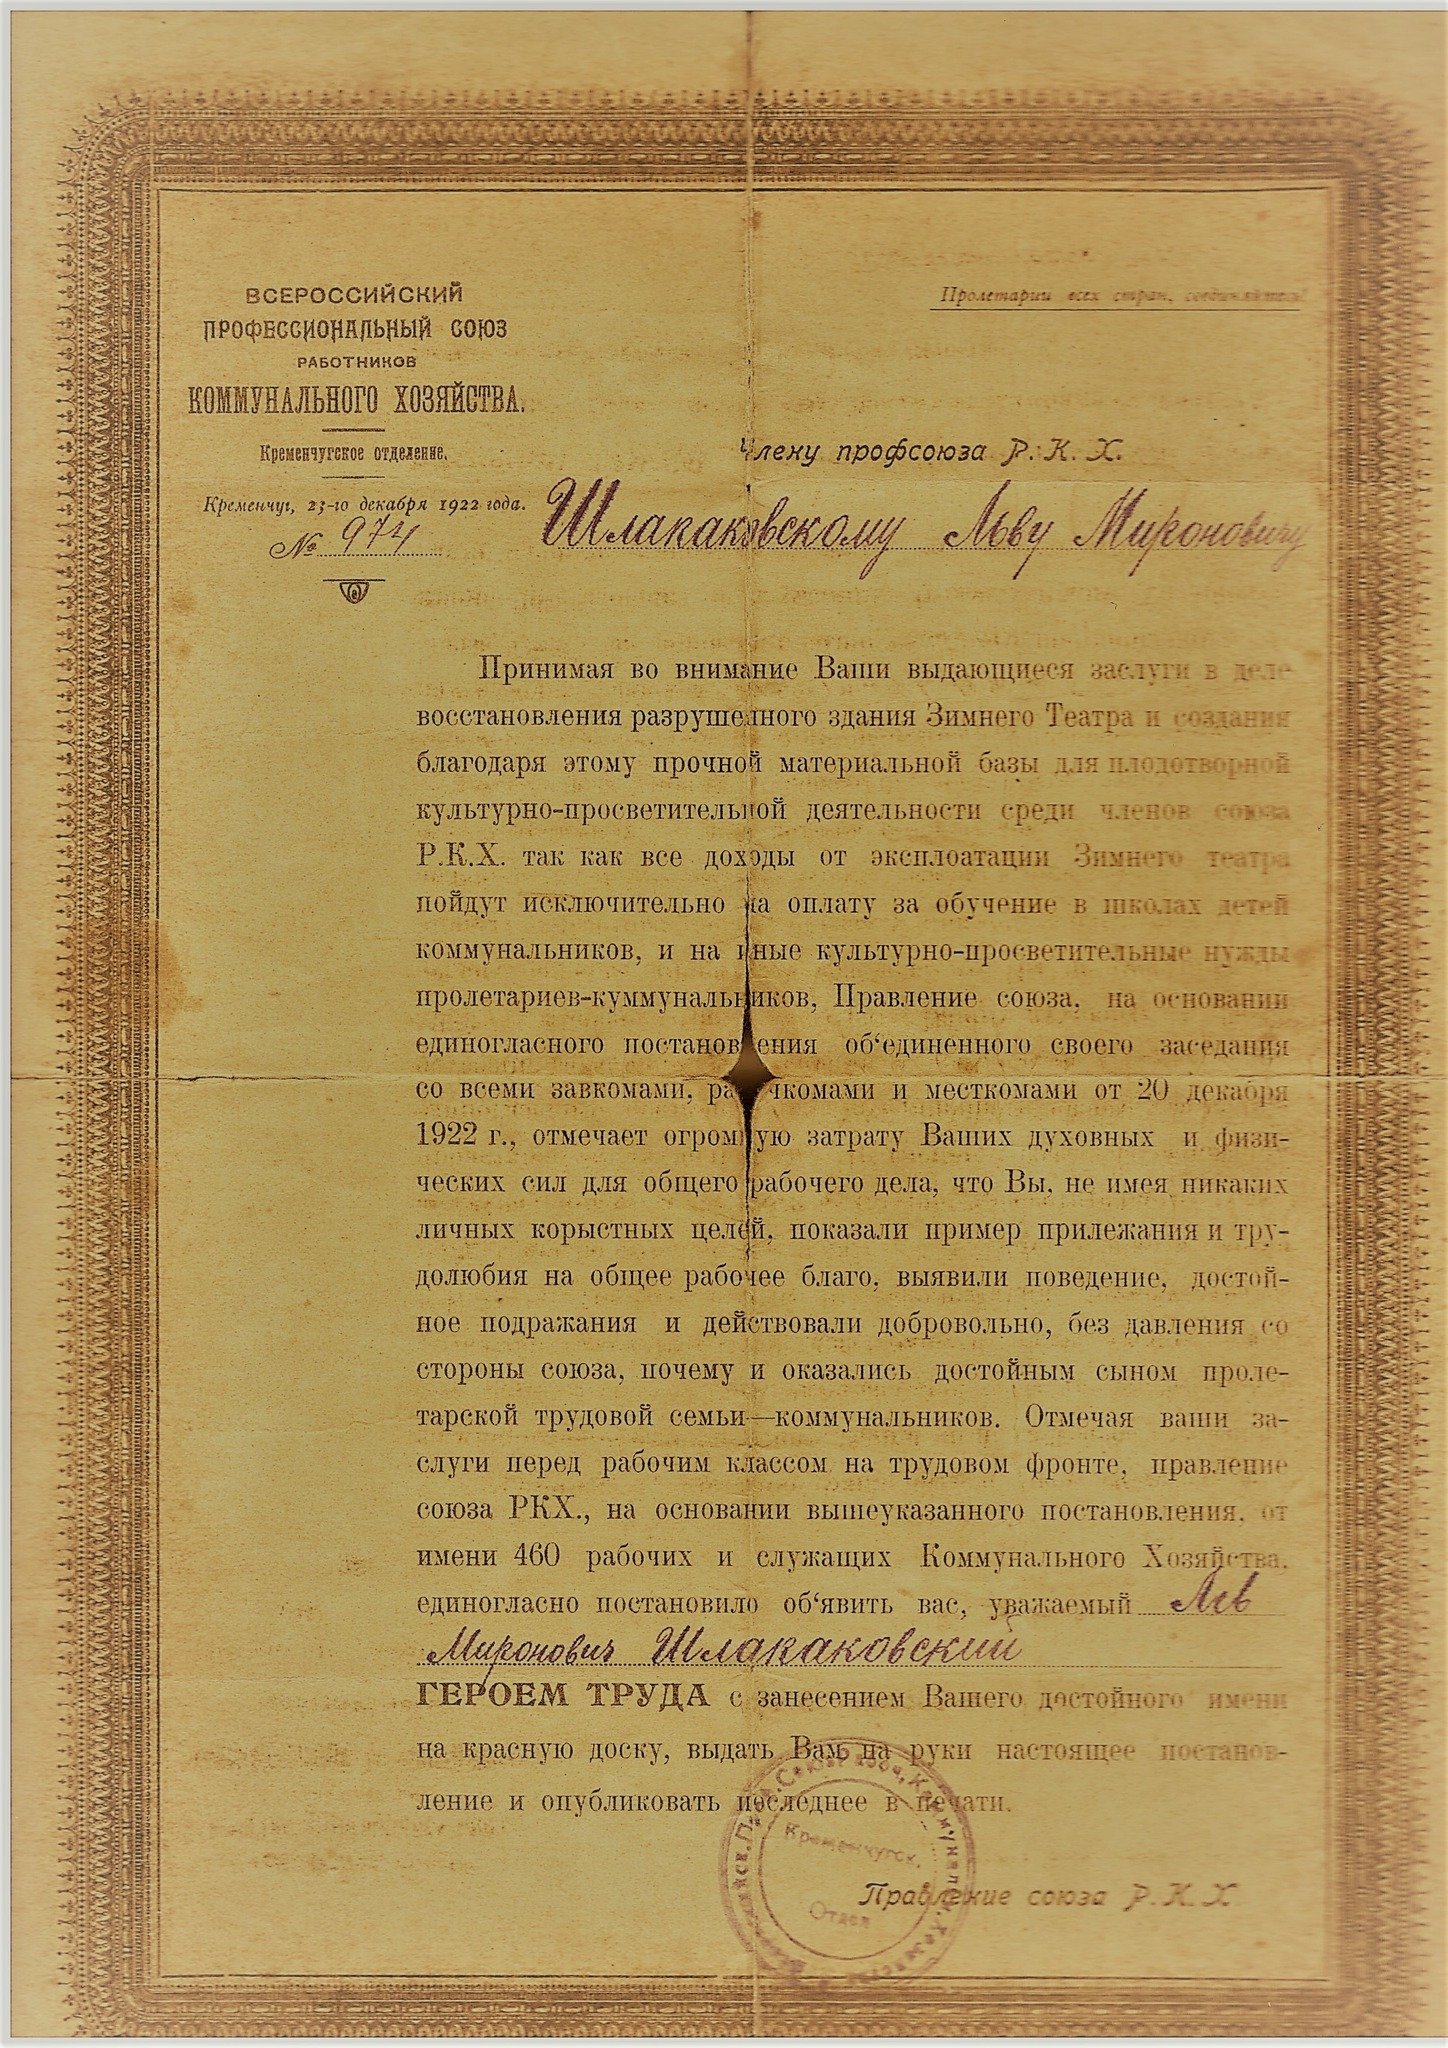 ВСЕРОССИЙСКИЙ
ПРОФЕССИОНАЛЬНЫЙ СОЮЗ
РАБОТНИКОВ
КОММУНАЛЬНОГО ХОЗЯЙСТВА.
Кременчугское отделение.
Кременчуг, 23-го декабря 1922 года.
№ 974
Пролетарии всех стран, соединяйтесь!
Члену профсоюза Р. К. Х.
Шлакаковскому Льву Мироновичу
Принимая во внимание Ваши выдающиеся заслуги в деле
восстановления разрушенного здания Зимнего Театра и создания
благодаря этому прочной материальной базы для плодотворной
культурно-просветительной деятельности среди членов союза
Р.К.Х. так как все доходы от эксплоатации Зимнего театра
пойдут исключительно на оплату за обучение в школах детей
коммунальников, и на иные культурно-просветительные нужды
пролетариев-куммунальников, Правление союза, на основании
единогласного постановления об‘единенного своего заседания
со всеми завкомами, рабочкомами и месткомами от 20 декабря
1922 г., отмечает огромную затрату Ваших духовных и физи-
ческих сил для общего рабочего дела, что Вы, не имея никаких
личных корыстных целей, показали пример прилежания и тру-
долюбия на общее рабочее благо, выявили поведение, достой-
ное подражания и действовали добровольно, без давления со
стороны союза, почему и оказались достойным сыном проле-
тарской трудовой семьи—коммунальников. Отмечая ваши за-
слуги перед рабочим классом на трудовом фронте, правление
союза РКХ., на основании вышеуказанного постановления, от
имени 460 рабочих и служащих Коммунального Хозяйства,
единогласно постановило об‘явить вас, уважаемый Лев
Миронович Шлакаковский
ГЕРОЕМ ТРУДА с занесением Вашего достойного имени
на красную доску, выдать Вам на руки настоящее постанов-
ление и опубликовать последнее в печати.
Правление союза Р. К. Х
Кременчугск.
Отдел